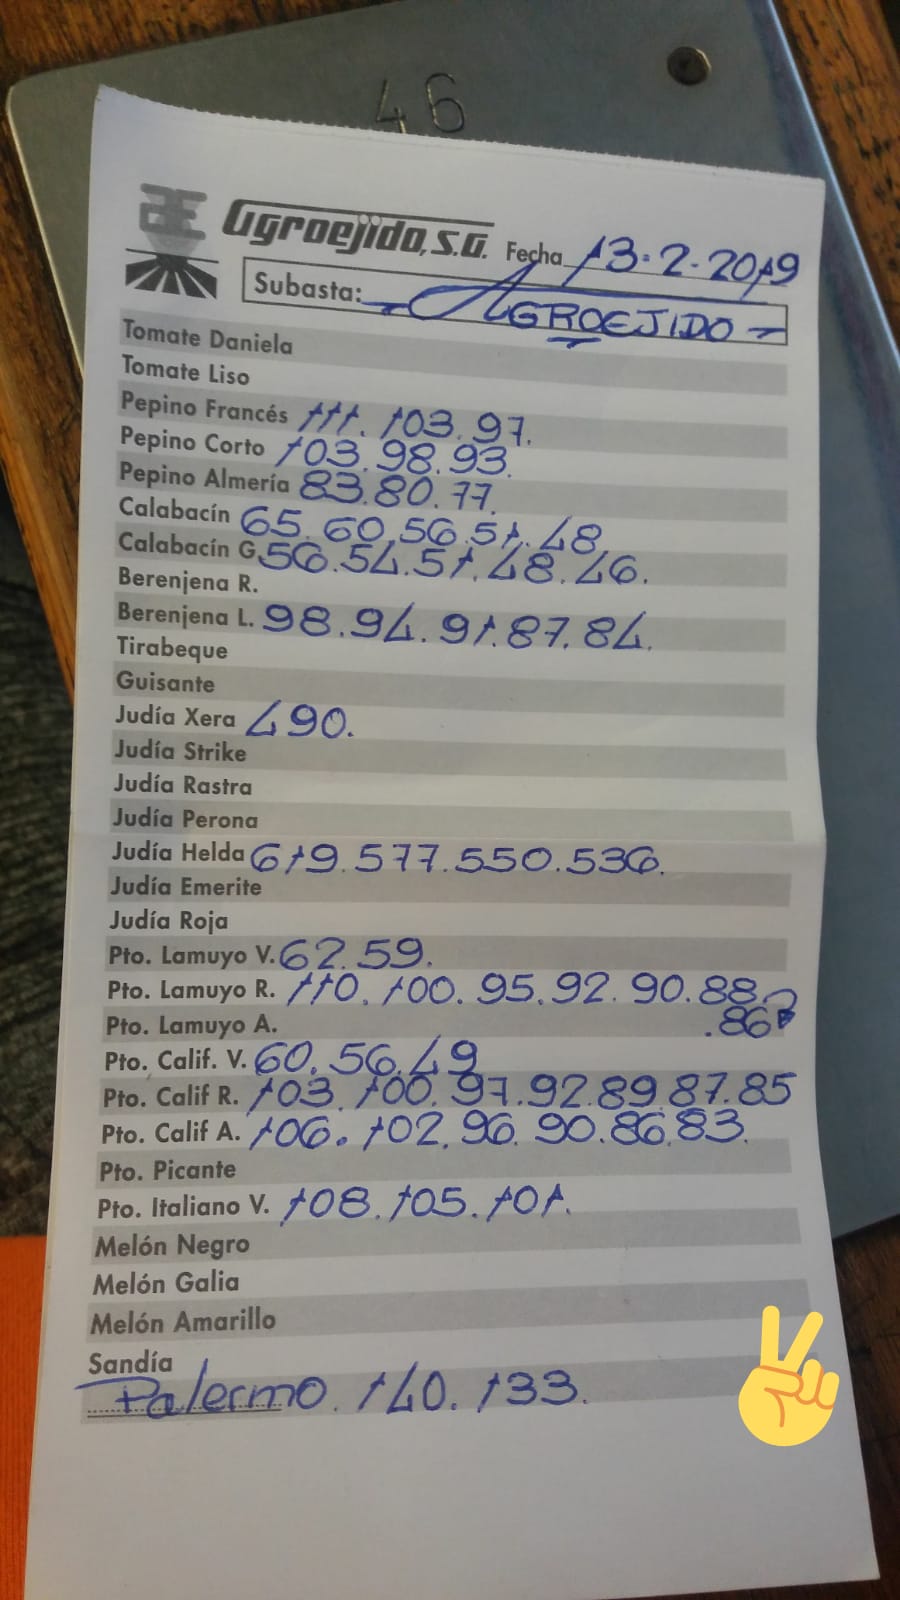 46
Agroejido, S.A. Fecha 13-2-2019
Subasta: AGROEJIDO
Tomate Daniela
Tomate Liso
Pepino Francés 111. 103. 97.
Pepino Corto 103. 98. 93.
Pepino Almería 83. 80. 77.
Calabacín 65. 60. 56. 51. 48
Calabacín G. 56. 54. 51. 48. 46.
Berenjena R.
Berenjena L. 98. 94. 91. 87. 84.
Tirabeque
Guisante
Judía Xera 490.
Judía Strike
Judía Rastra
Judía Perona
Judía Helda 619. 577. 550. 536.
Judía Emerite
Judía Roja
Pto. Lamuyo V. 62. 59.
Pto. Lamuyo R. 110. 100. 95. 92. 90. 88
.86
Pto. Lamuyo A.
Pto. Calif. V. 60. 56. 49
Pto. Calif R. 103. 100. 97. 92. 89. 87. 85
Pto. Calif A. 106. 102. 96. 90. 86. 83.
Pto. Picante
Pto. Italiano V. 108. 105. 101.
Melón Negro
Melón Galia
Melón Amarillo
Sandía
Palermo. 140. 133.